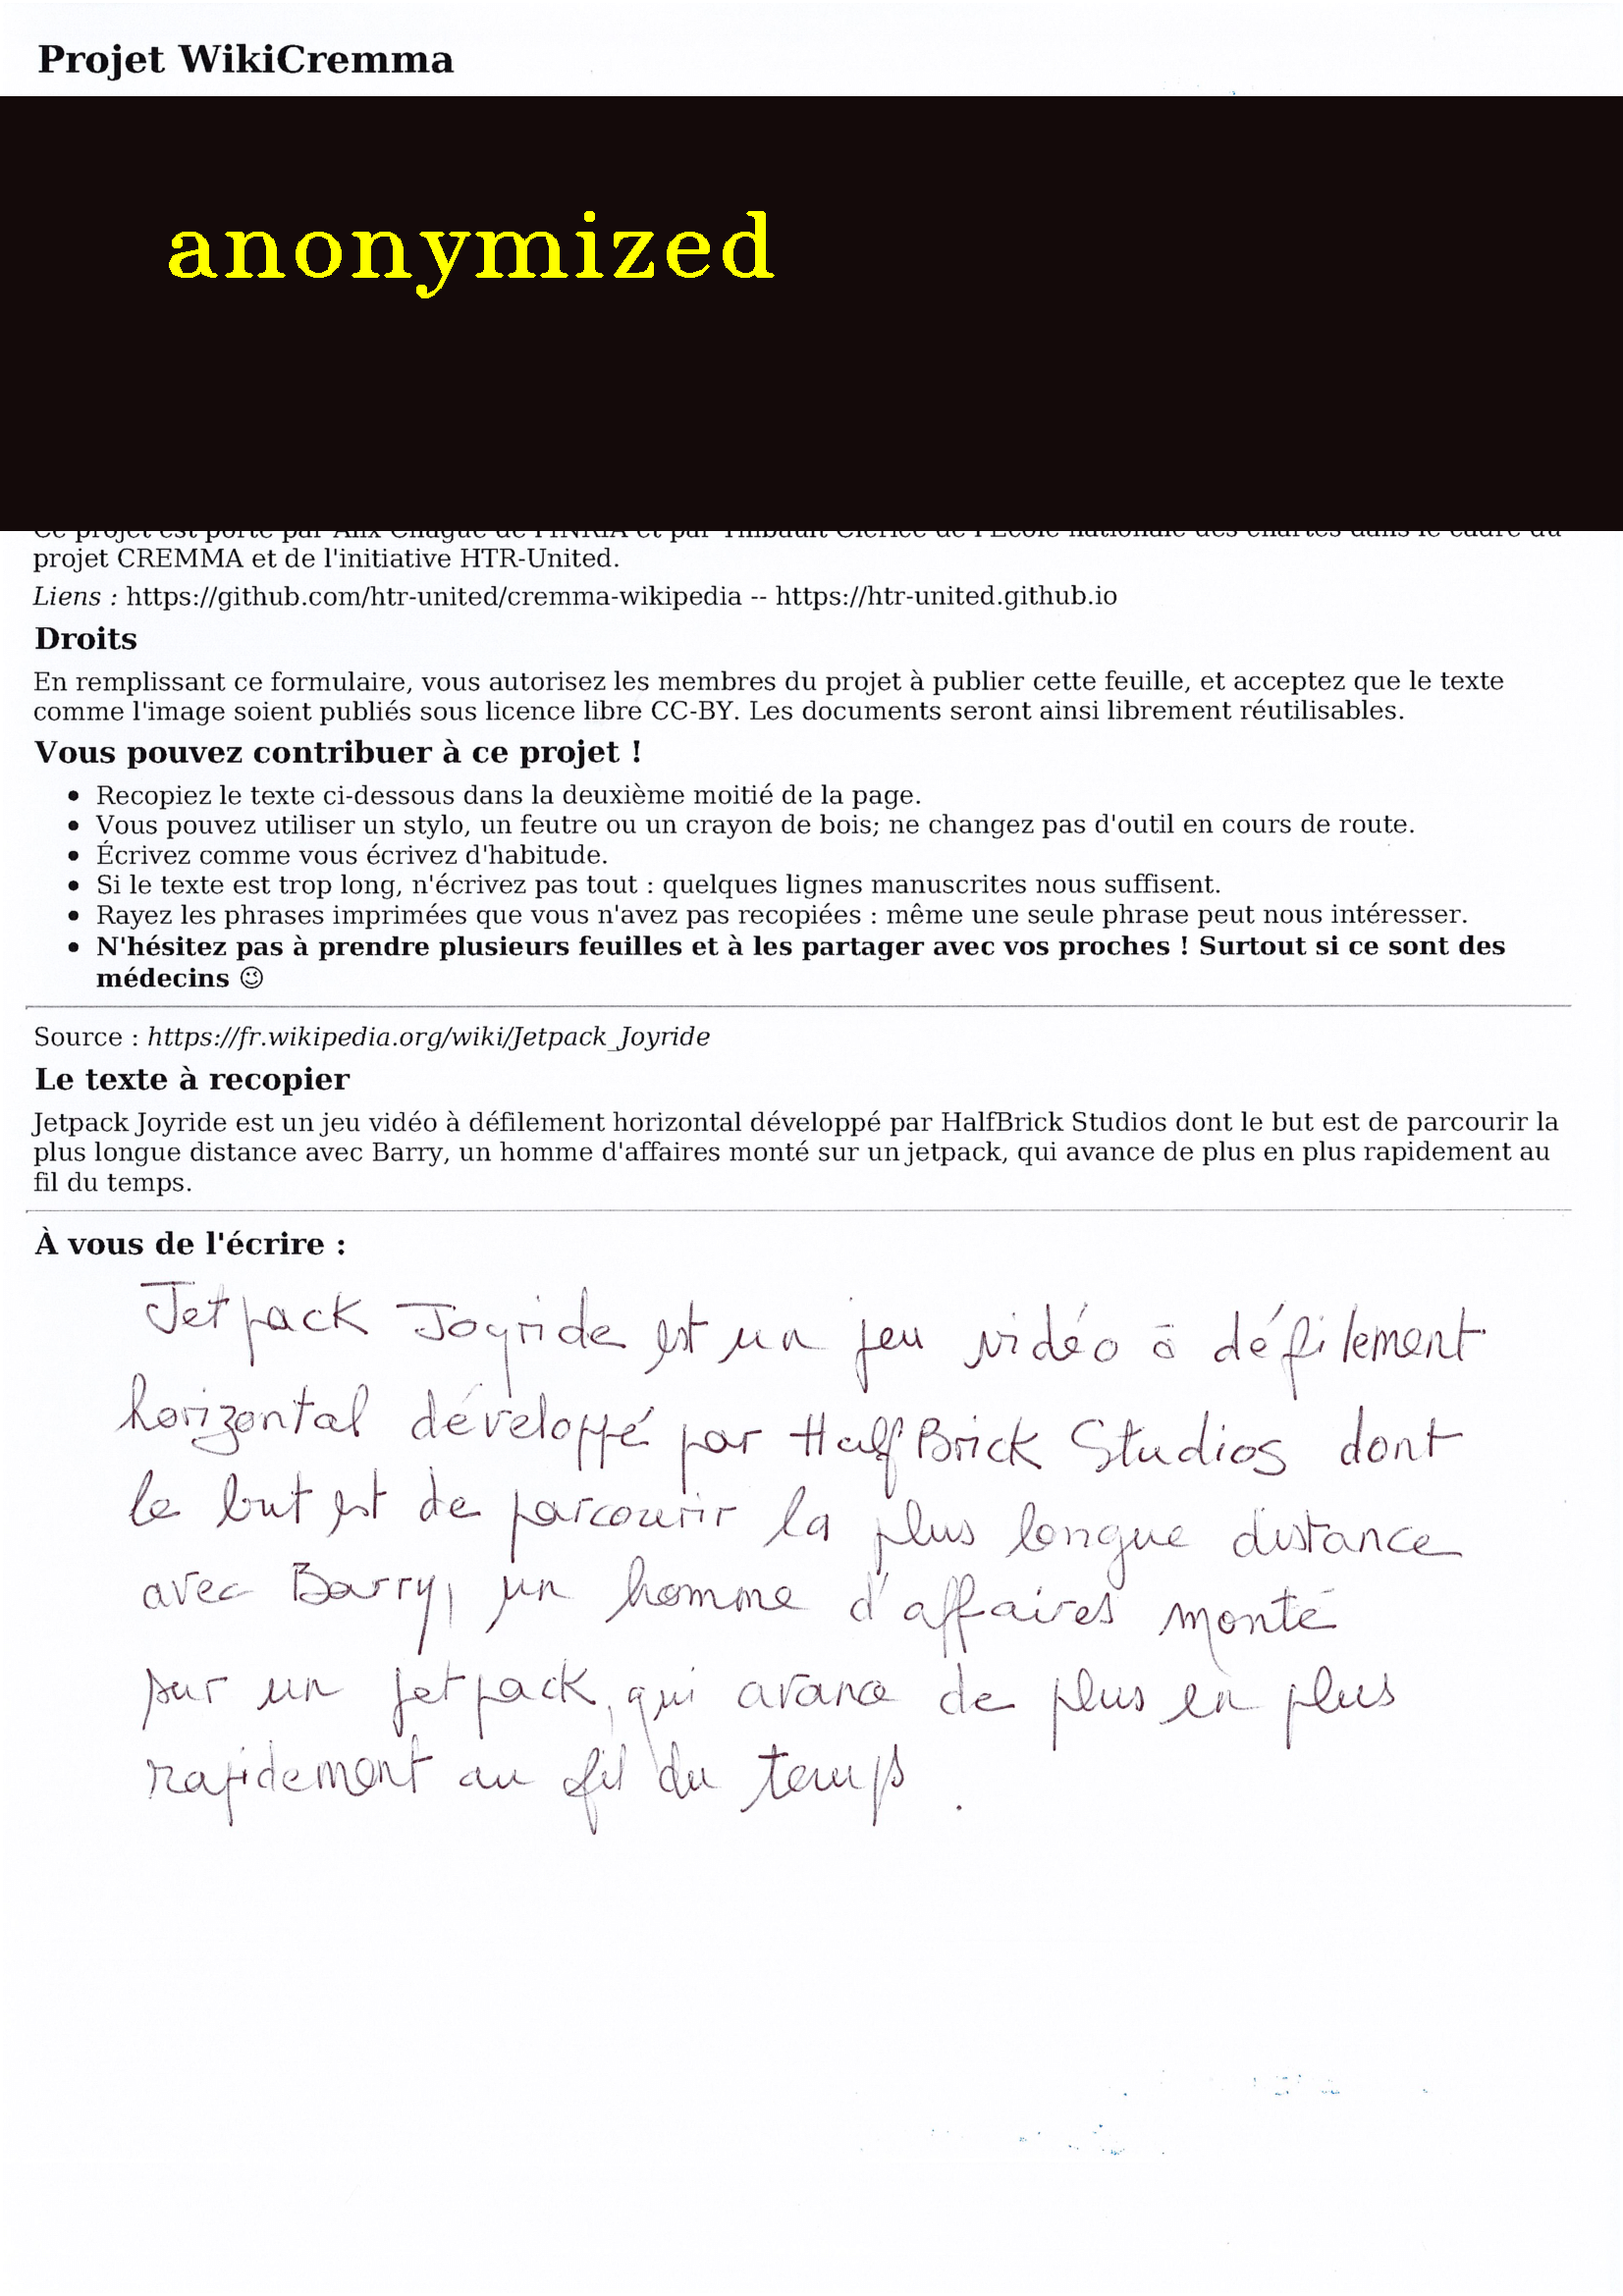 Projet WikiCremma
anonymized
Ce projet est porté par Alix Chagué de l'INRIA et par Thibault Clérice de l'École nationale des chartes dans le cadre du
projet CREMMA et de l'initiative HTR-United.
Liens : https://github.com/htr-united/cremma-wikipedia -- https://htr-united.github.io
Droits
En remplissant ce formulaire, vous autorisez les membres du projet à publier cette feuille, et acceptez que le texte
comme l'image soient publiés sous licence libre CC-BY. Les documents seront ainsi librement réutilisables.
Vous pouvez contribuer à ce projet !
• Recopiez le texte ci-dessous dans la deuxième moitié de la page.
• Vous pouvez utiliser un stylo, un feutre ou un crayon de bois; ne changez pas d'outil en cours de route.
• Écrivez comme vous écrivez d'habitude.
• Si le texte est trop long, n'écrivez pas tout : quelques lignes manuscrites nous suffisent.
• Rayez les phrases imprimées que vous n'avez pas recopiées : même une seule phrase peut nous intéresser.
• N'hésitez pas à prendre plusieurs feuilles et à les partager avec vos proches ! Surtout si ce sont des
médecins 😉
Source : https://fr.wikipedia.org/wiki/Jetpack_Joyride
Le texte à recopier
Jetpack Joyride est un jeu vidéo à défilement horizontal développé par HalfBrick Studios dont le but est de parcourir la
plus longue distance avec Barry, un homme d'affaires monté sur un jetpack, qui avance de plus en plus rapidement au
fil du temps.
À vous de l'écrire :
Jetpack Joyride est un jeu vidéo à défilement
horizontal développé par HalfBrick Studios dont
le but est de parcourir la plus longue distance
avec Barry, un homme d'affaires monté
sur un jetpack, qui avance de plus en plus
rapidement au fil du temps.